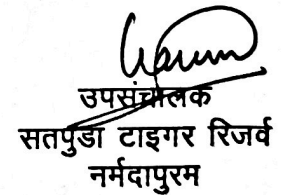 उपसंचालक
सतपुडा टाइगर रिजर्व
नर्मदापुरम